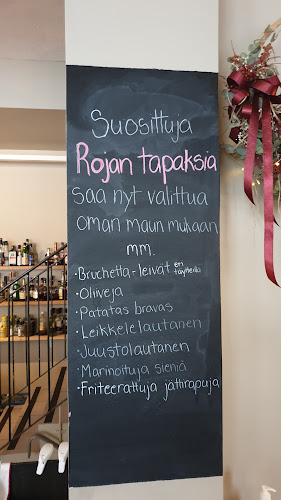 Suosittuja
Rojan tapaksia
saa nyt valittua
oman maun mukaan
mm.
·Bruchetta-leivät eri täytteillä
·Oliveja
·Patatas bravas
·Leikkelelautanen
·Juustolautanen
·Marinoituja sieniä
·Friteerattuja jättirapuja